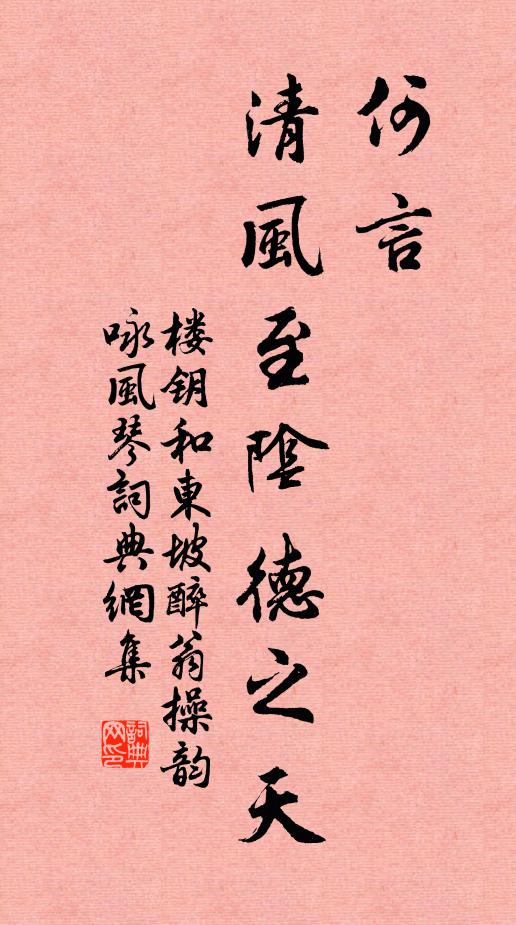 何言
清風至陰德之天
楼钥和東坡醉翁操韵
咏風琴詞典網集
詞典網印